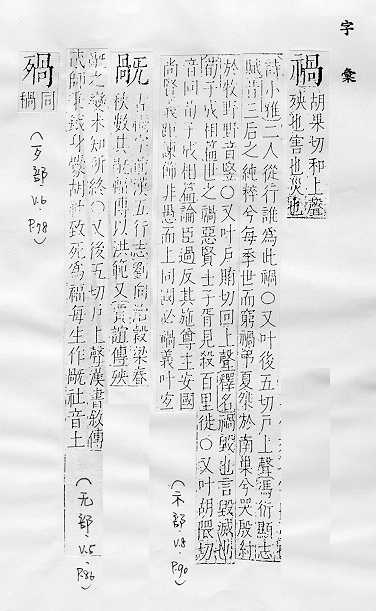 字彙
禍
胡果切和上聲
殃也害也災也
詩小雅二人從行誰爲此禍○又叶後五切戸上聲馮衍顯志
賦昔三后之純粹兮每季世而窮禍弔夏桀於南巢兮哭殷紂
於牧野野音竪○又叶戸賄切回上聲釋名禍毀也言毀滅也
荀子成相篇世之禍惡賢士子胥見殺百里徙○又叶胡隈切
音回荀子成相篇論臣過反其施尊主安國
尚賢義拒諫飾非愚而上同國必禍義叶宜
(示部 V.8. P.90)
旤
古禍字前漢五行志劉向治穀梁春
秋數其旤福傳以洪範又賈誼傳殃
旤之變未知所終○又後五切戸上聲漢書敘傳
成師 致死爲福每生作旤 音土
(无部 V.5. P.86)
𣨼
同
禍
(歹部 V.6 P.78)